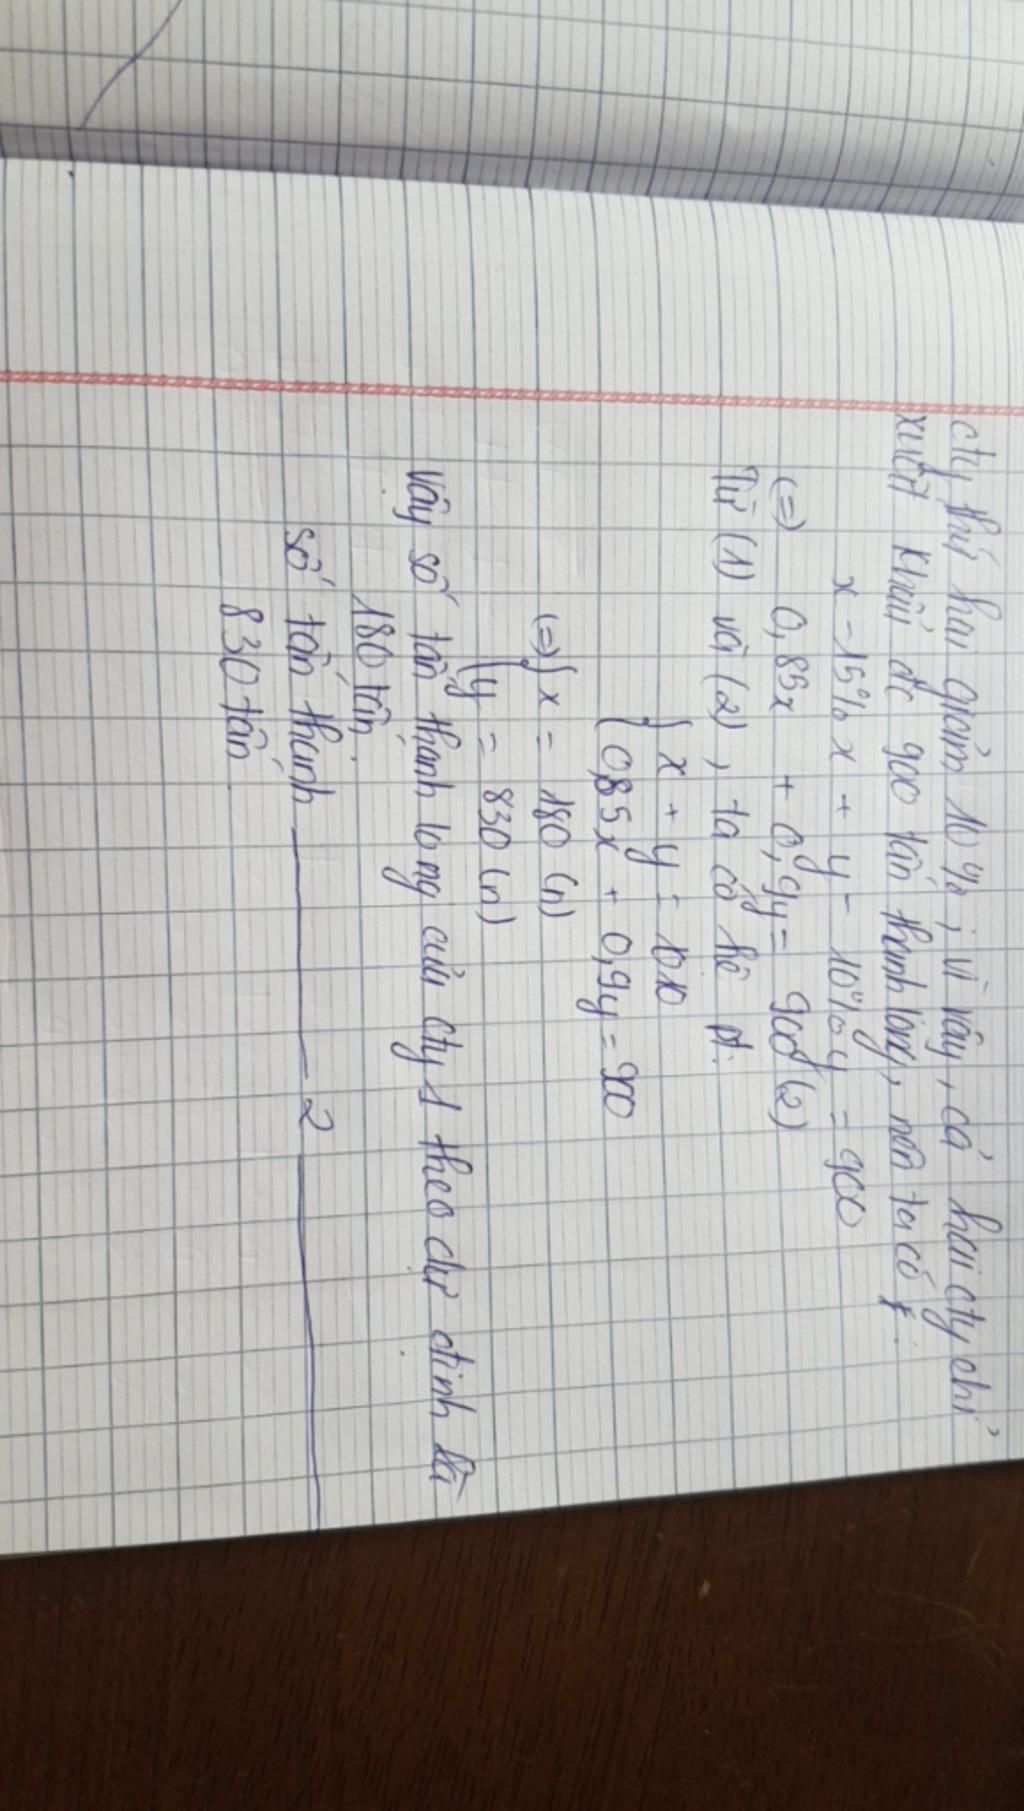 cty thứ hai giảm 10%; vì vậy, cả hai cty chỉ
xuất khẩu đc 900 tấn thanh long, nên ta có
x - 15% x + y - 10% y = 900
(=) 0,85x + 0,9y = 900 (2)
Từ (1) và (2), ta có hệ pt:
{ x + y = 1010
{ 0,85x + 0,9y = 900
(=) { x = 180 (n)
{ y = 830 (n)
Vậy số tấn thanh long của cty 1 theo dự định là
180 tấn.
số tấn thanh ——— 2 ———
830 tấn